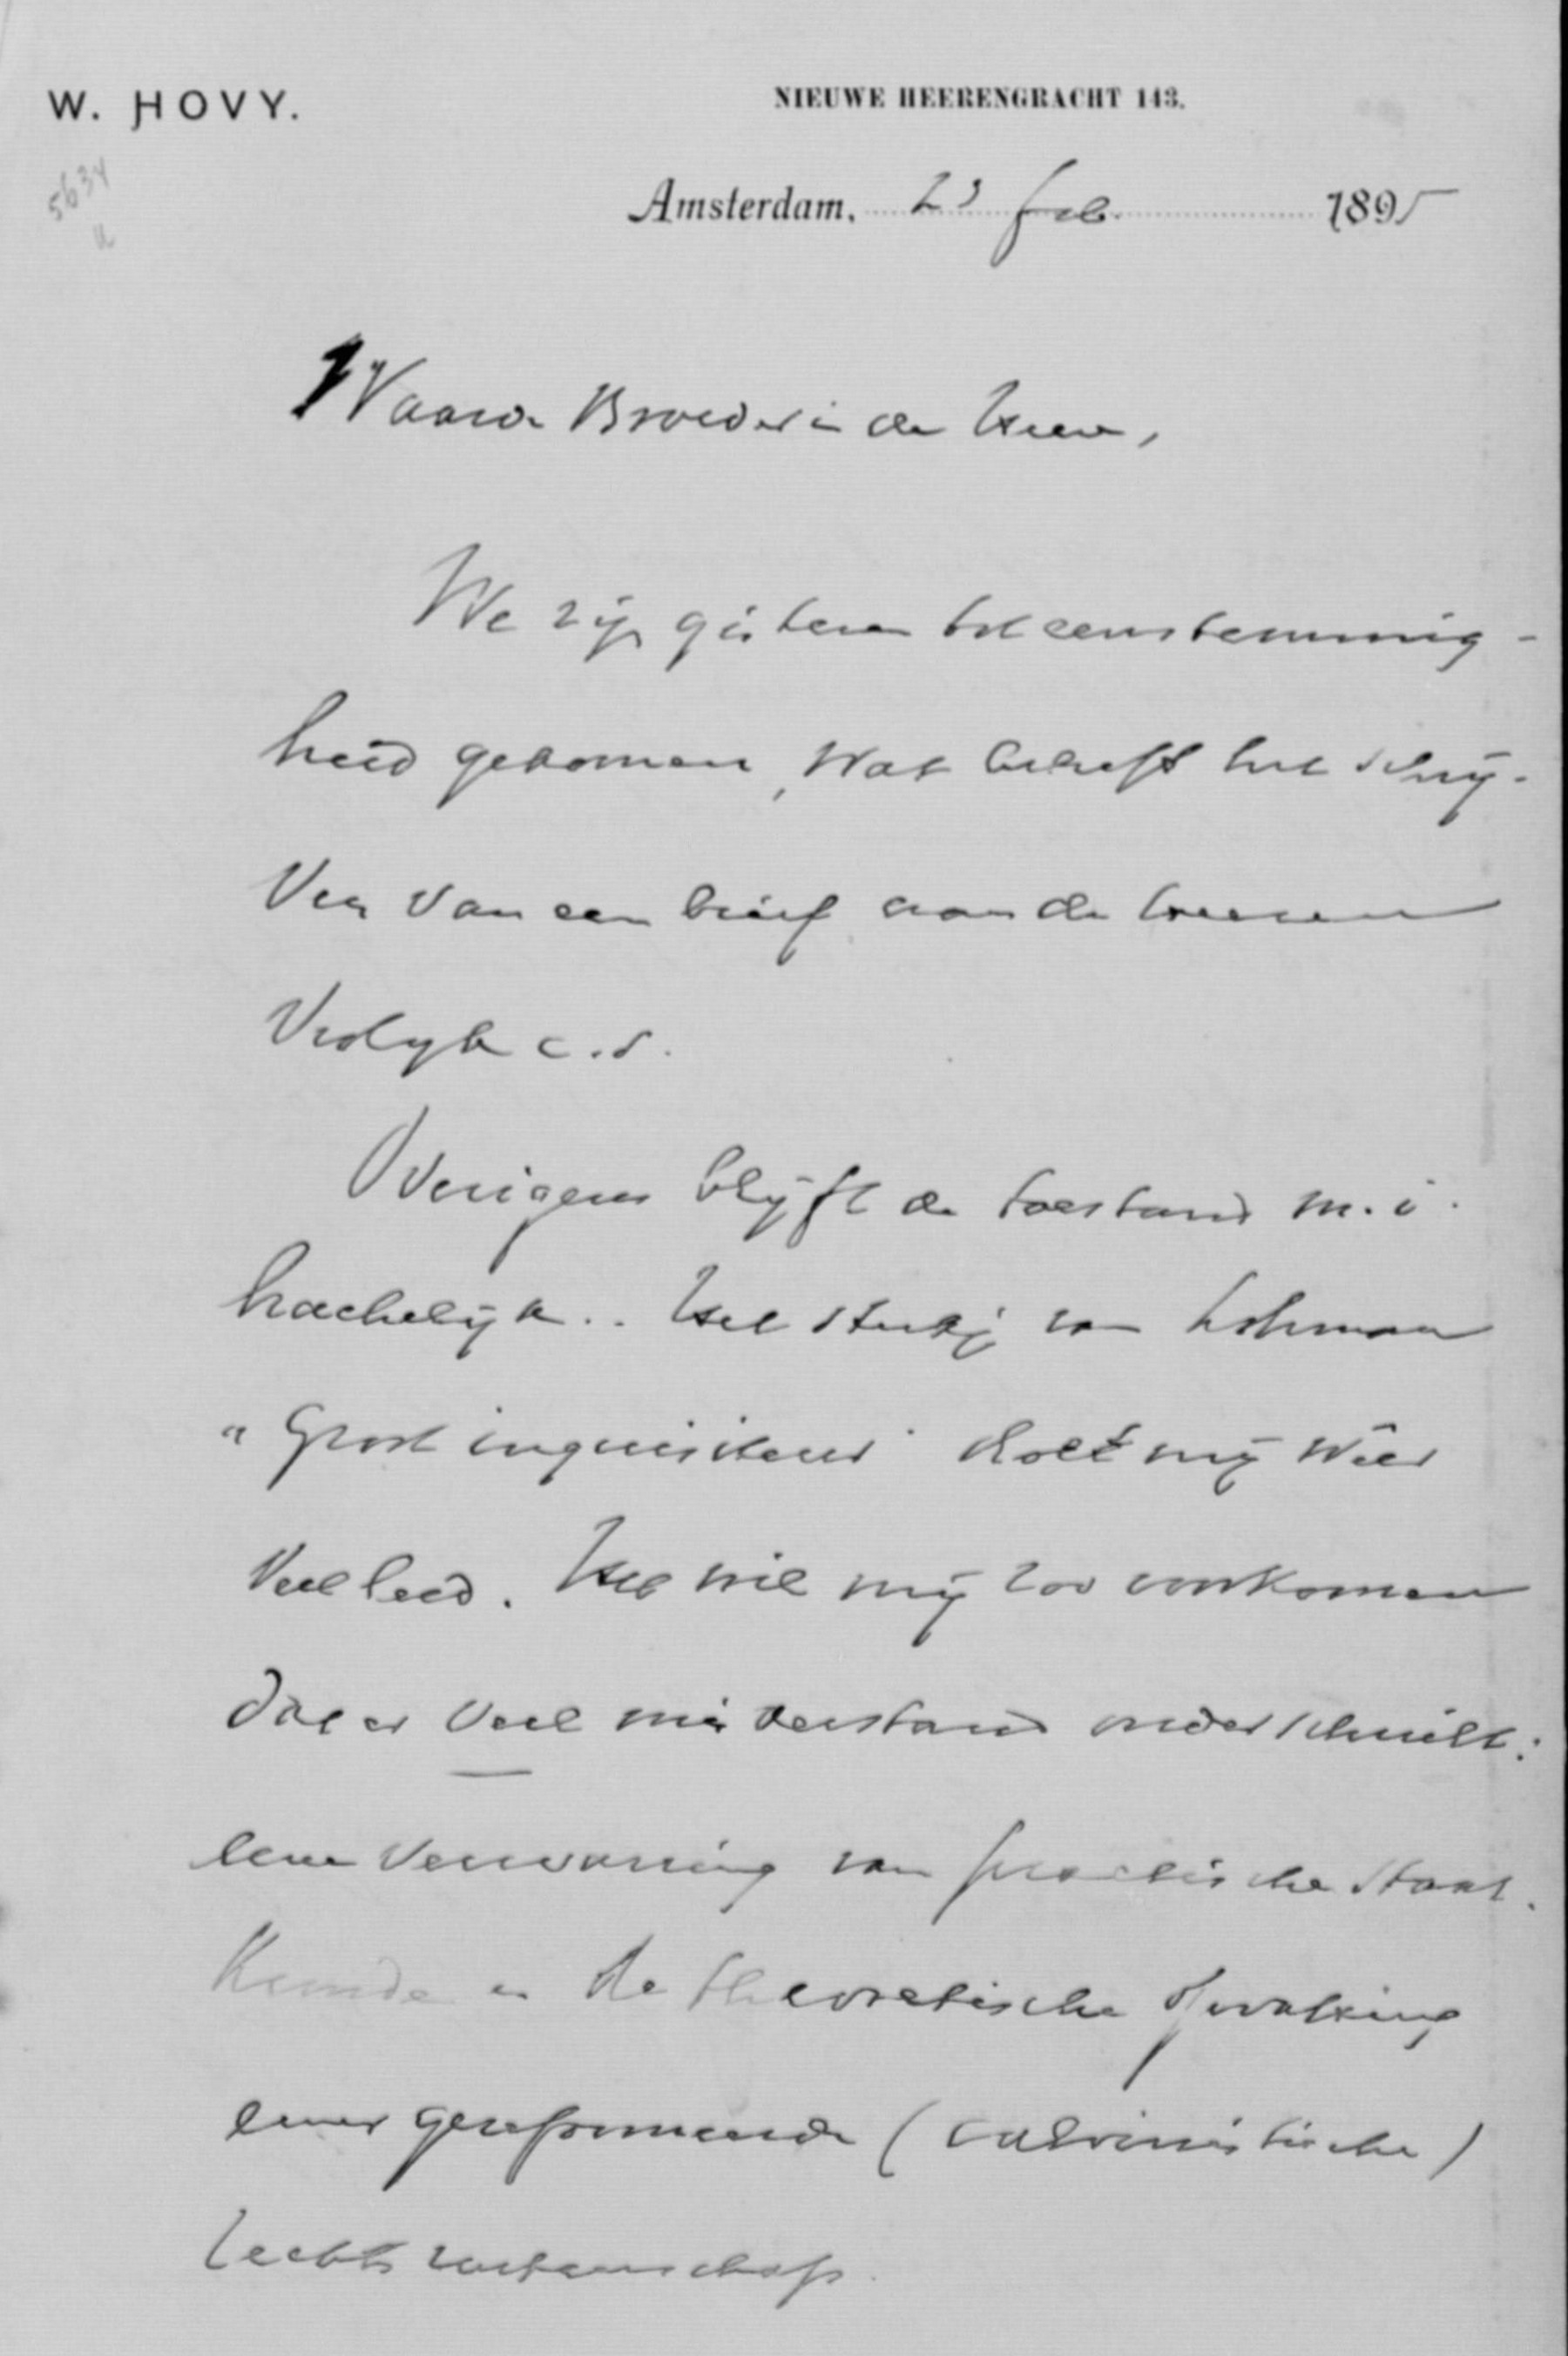 W. HOVY.
NIEUWE HEERENGRACHT 143.
5634
Amsterdam, 23 feb. 1895
Waarde Broeder in den Heere,
We zijn gisteren tot eenstemmig-
heid gekomen, wat betreft het schrij-
ven van een brief aan de heeren
c.s.
Overigens blijft de toestand m.i.
hachelijk.. Het stukje van Lohman
"Groot inquisiteur" doet mij weer
veel leed. Het wil mij zoo voorkomen
dat er veel misverstand onder schuilt:
eene verwarring van practische staat-
kunde en de theoretische opvatting
eener gereformeerde (calvinistische)
rechtswetenschap.